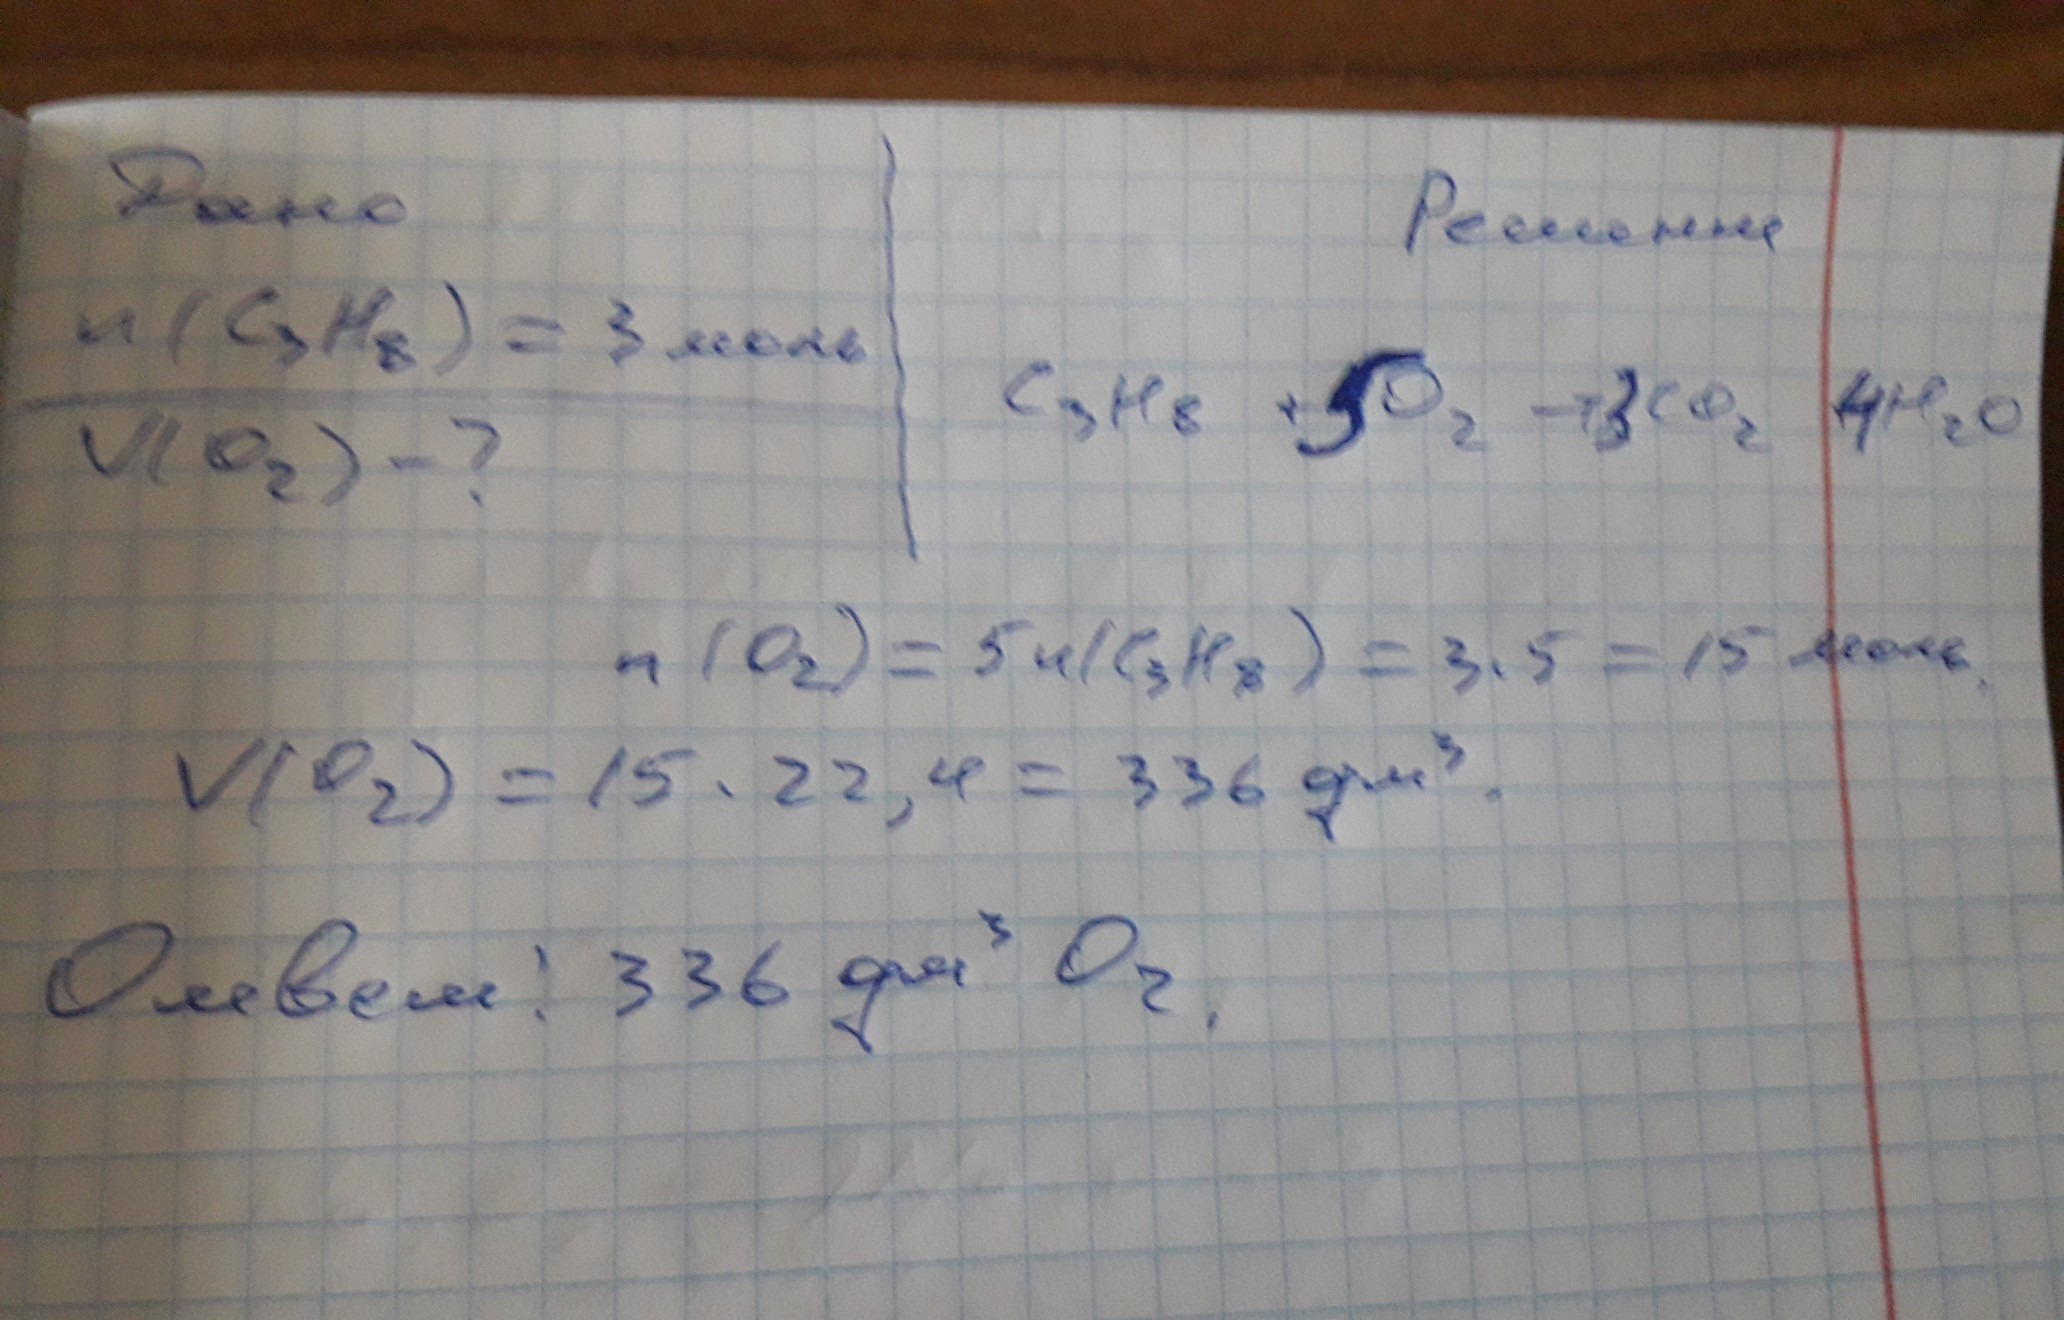 Дано
Решение
n(C₃H₈) = 3 моль
V(O₂) - ?
C₃H₈ + 5O₂ → 3CO₂ 4H₂O
n(O₂) = 5n(C₃H₈) = 3·5 = 15 моль.
V(O₂) = 15 · 22,4 = 336 дм³.
Ответ: 336 дм³ O₂.